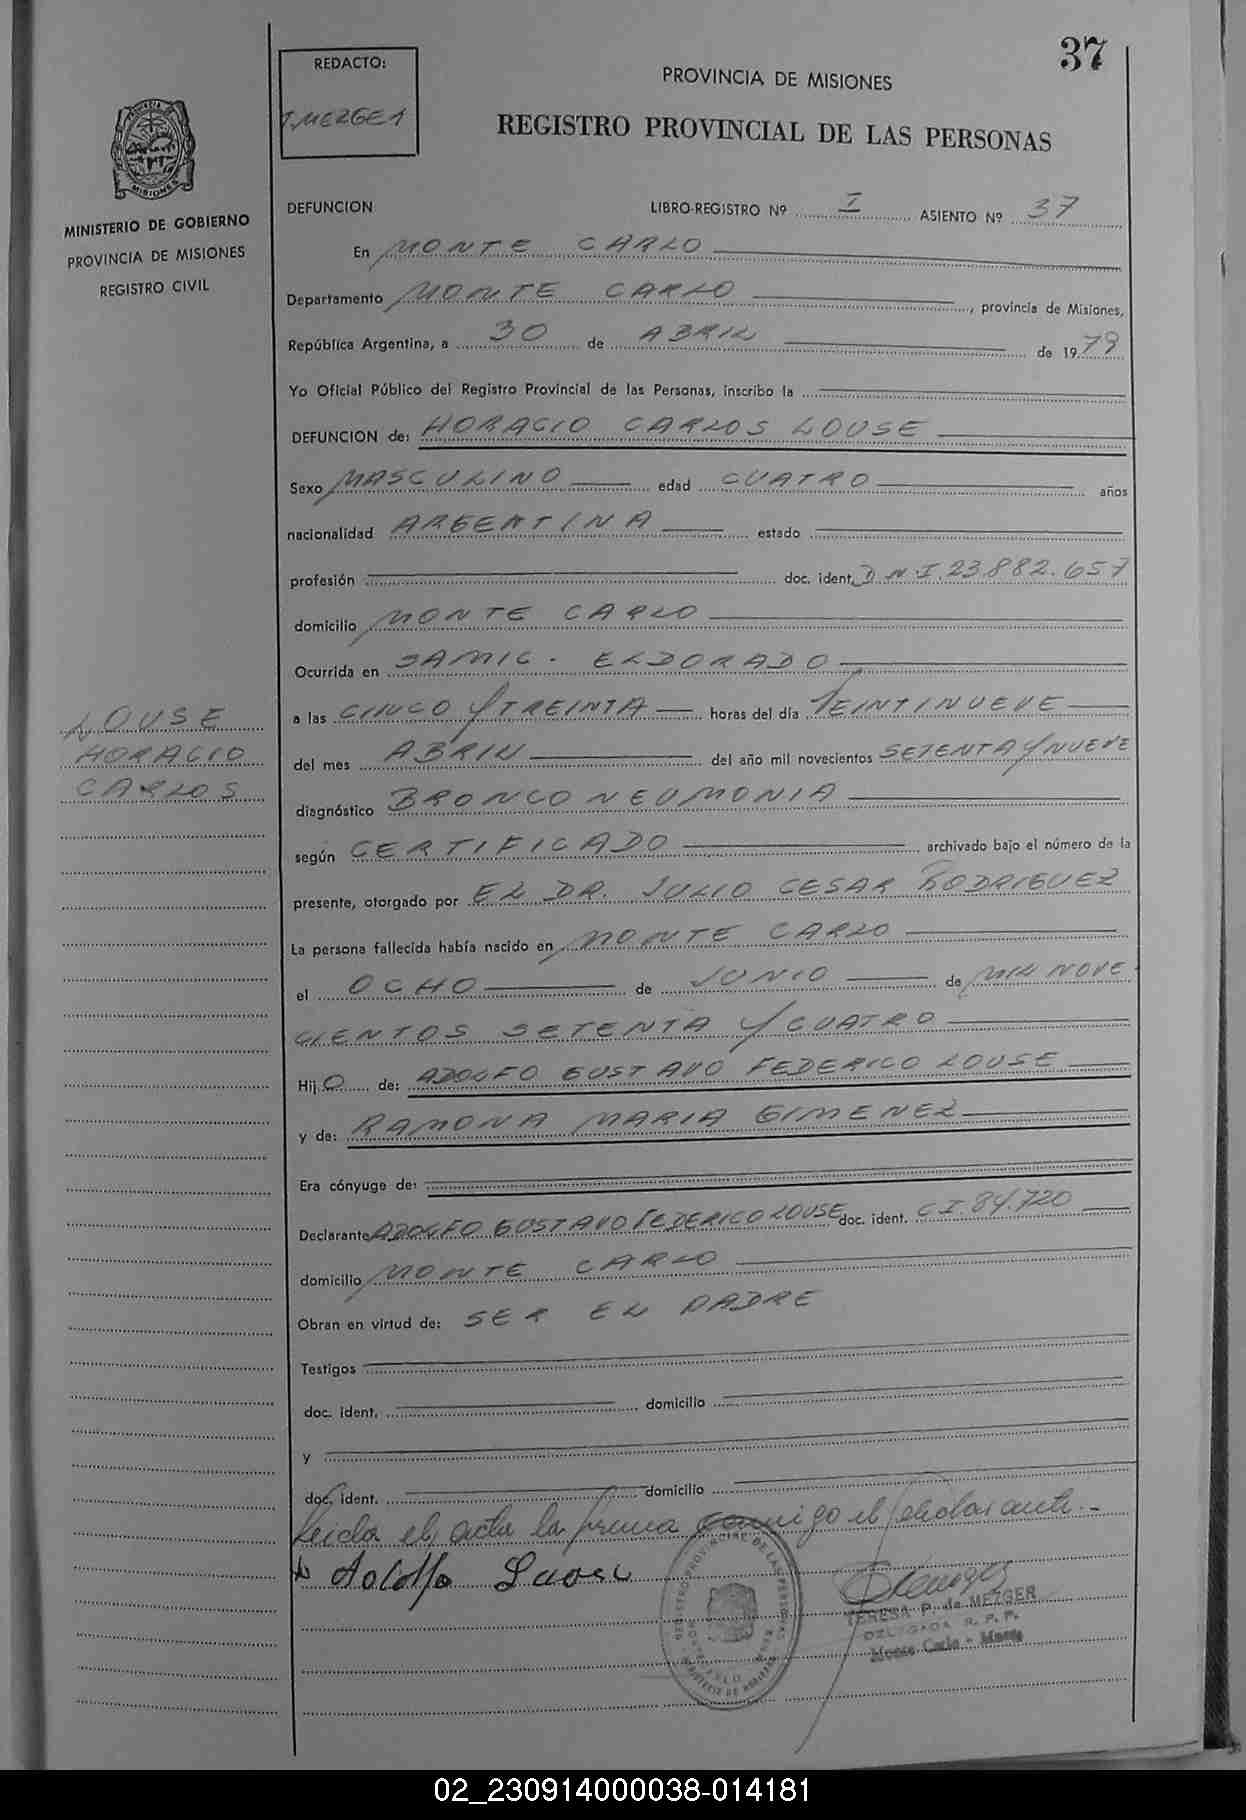 37
REDACTO:
T. MEZGER
PROVINCIA DE MISIONES
REGISTRO PROVINCIAL DE LAS PERSONAS
PROVINCIA DE
MISIONES
MINISTERIO DE GOBIERNO
PROVINCIA DE MISIONES
REGISTRO CIVIL
DEFUNCION LIBRO-REGISTRO Nº I ASIENTO Nº 37
En MONTE CARLO
Departamento MONTE CARLO, provincia de Misiones,
República Argentina, a 30 de ABRIL de 1979
Yo Oficial Público del Registro Provincial de las Personas, inscribo la
DEFUNCION de: HORACIO CARLOS LOUSE
Sexo MASCULINO edad CUATRO años
nacionalidad ARGENTINA estado
profesión doc. ident. D.N.I. 23.882.657
domicilio MONTE CARLO
Ocurrida en SAMIC. ELDORADO
LOUSE
HORACIO
CARLOS
a las CINCO Y TREINTA horas del día VEINTINUEVE
del mes ABRIL del año mil novecientos SETENTA Y NUEVE
diagnóstico BRONCONEUMONIA
según CERTIFICADO archivado bajo el número de la
presente, otorgado por EL DR. JULIO CESAR RODRIGUEZ
La persona fallecida había nacido en MONTE CARLO
el OCHO de JUNIO de MIL NOVE
CIENTOS SETENTA Y CUATRO
Hij O de: ADOLFO GUSTAVO FEDERICO LOUSE
y de: RAMONA MARIA GIMENEZ
Era cónyuge de:
Declarante ADOLFO GUSTAVO FEDERICO LOUSE doc. ident. C I. 84.720
domicilio MONTE CARLO
Obran en virtud de: SER EL PADRE
Testigos
doc. ident. domicilio
y
doc. ident. domicilio
Leida el acta la firma conmigo el declarante.-
Adolfo Louse
REGISTRO PROVINCIAL DE LAS PERSONAS
MINISTERIO DE GOBIERNO
TERESA P. de MEZGER
DELEGADA R. P. P.
Monte Carlo - Mnes
02_230914000038-014181